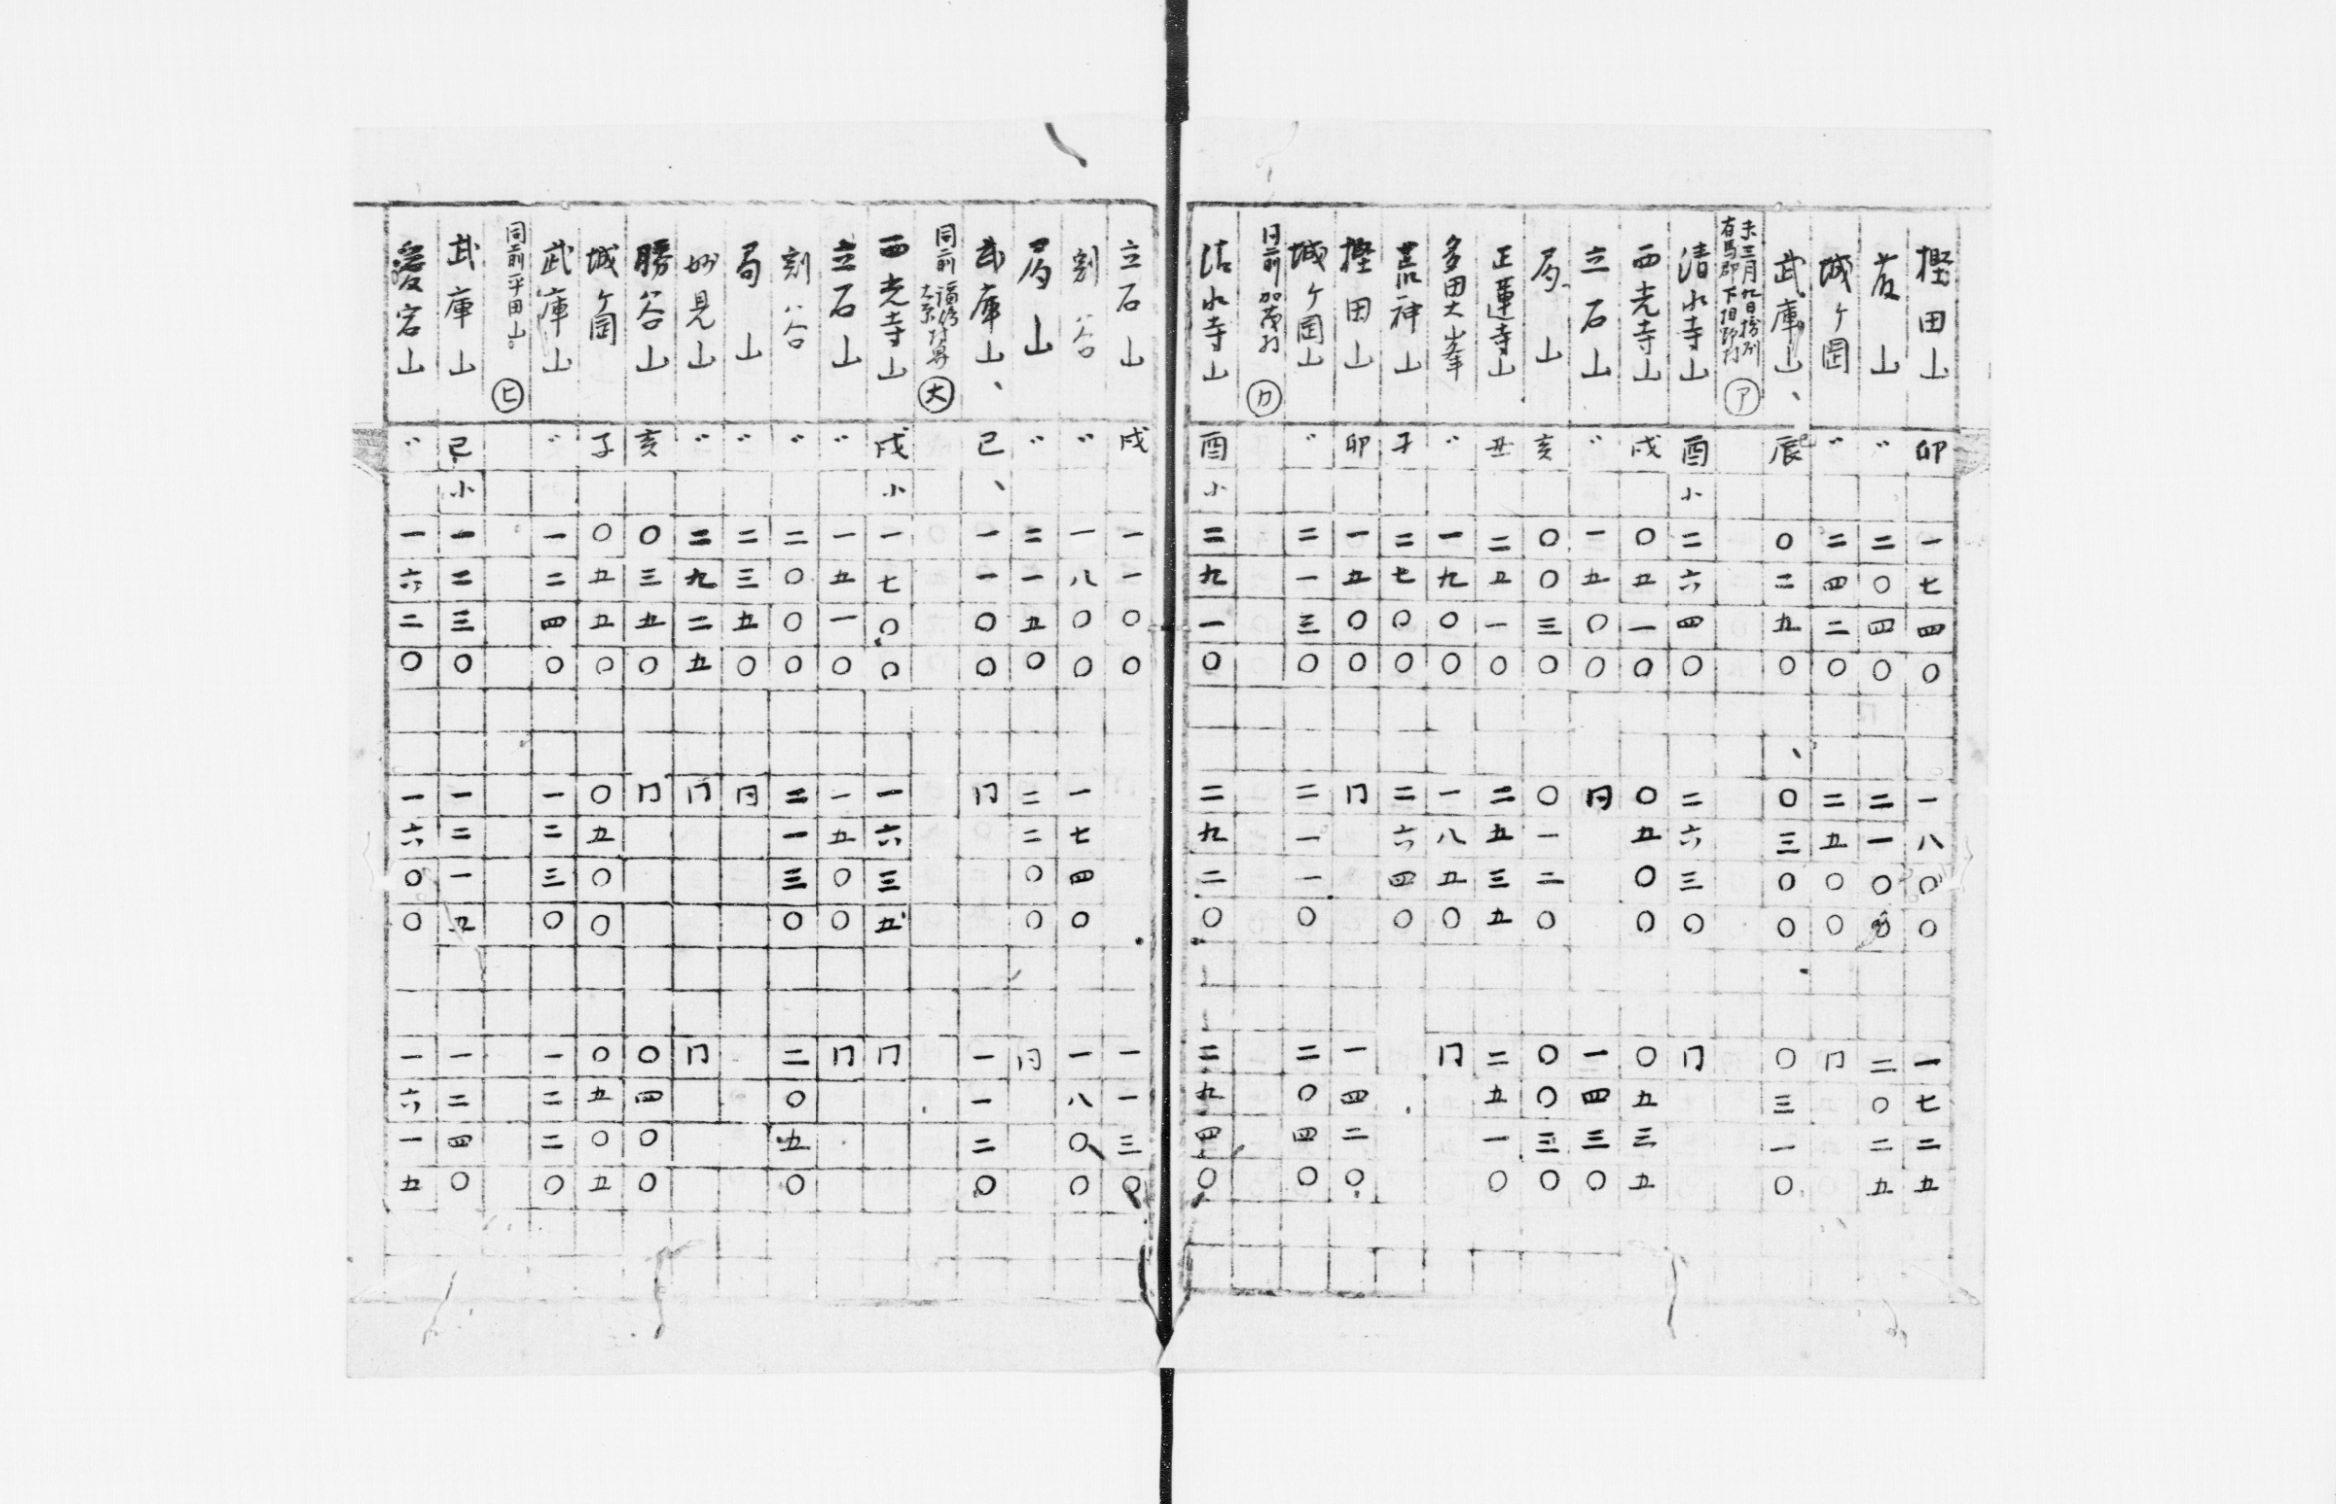 樫田山 卯 一七四〇 一八〇〇 一七二五
山 〃 二〇四〇 二一〇〇 二〇二五
城ケ岡 〃 二四二〇 二五〇〇 冂
武庫山、 辰 〇二五〇 〇三〇〇 〇三一〇
未三月九日
有馬郡下 ㋐
清水寺山 酉小 二六四〇 二六三〇 冂
西光寺山 戌 〇五一〇 〇五〇〇 〇五三五
立石山 〃 一五〇〇 冃 一四三〇
局山 亥 〇〇三〇 〇一二〇 〇〇三〇
正蓮寺山 丑 二五一〇 二五三五 二五一〇
多田大峯 〃 一九〇〇 一八五〇 冂
荒神山 子 二七〇〇 二六四〇
樫田山 卯 一五〇〇 冂 一四二〇
城ケ岡山 〃 二一三〇 二一一〇 二〇四〇
同前 加茂村 ㋕
清水寺山 酉小 二九一〇 二九二〇 二九四〇
立石山 戌 一一〇〇 一一三〇
割谷 〃 一八〇〇 一七四〇 一八〇〇
局山 〃 二一五〇 二二〇〇 冃
武庫山、 巳、 一一〇〇 冂 一一二〇
同前 ㊅
西光寺山 戌小 一七〇〇 一六三五 冂
立石山 〃 一五一〇 一五〇〇 冂
割谷 〃 二〇〇〇 二一三〇 二〇五〇
局山 〃 二三五〇 冃
妙見山 〃 二九二五 冂 冂
勝谷山 亥 〇三五〇 冂 〇四〇〇
城ケ岡 子 〇五五〇 〇五〇〇 〇五〇五
武庫山 〃 一二四〇 一二三〇 一二二〇
同前平田山 ㋪
武庫山 巳小 一二三〇 一二一五 一二四〇
愛宕山 〃 一六二〇 一六〇〇 一六一五